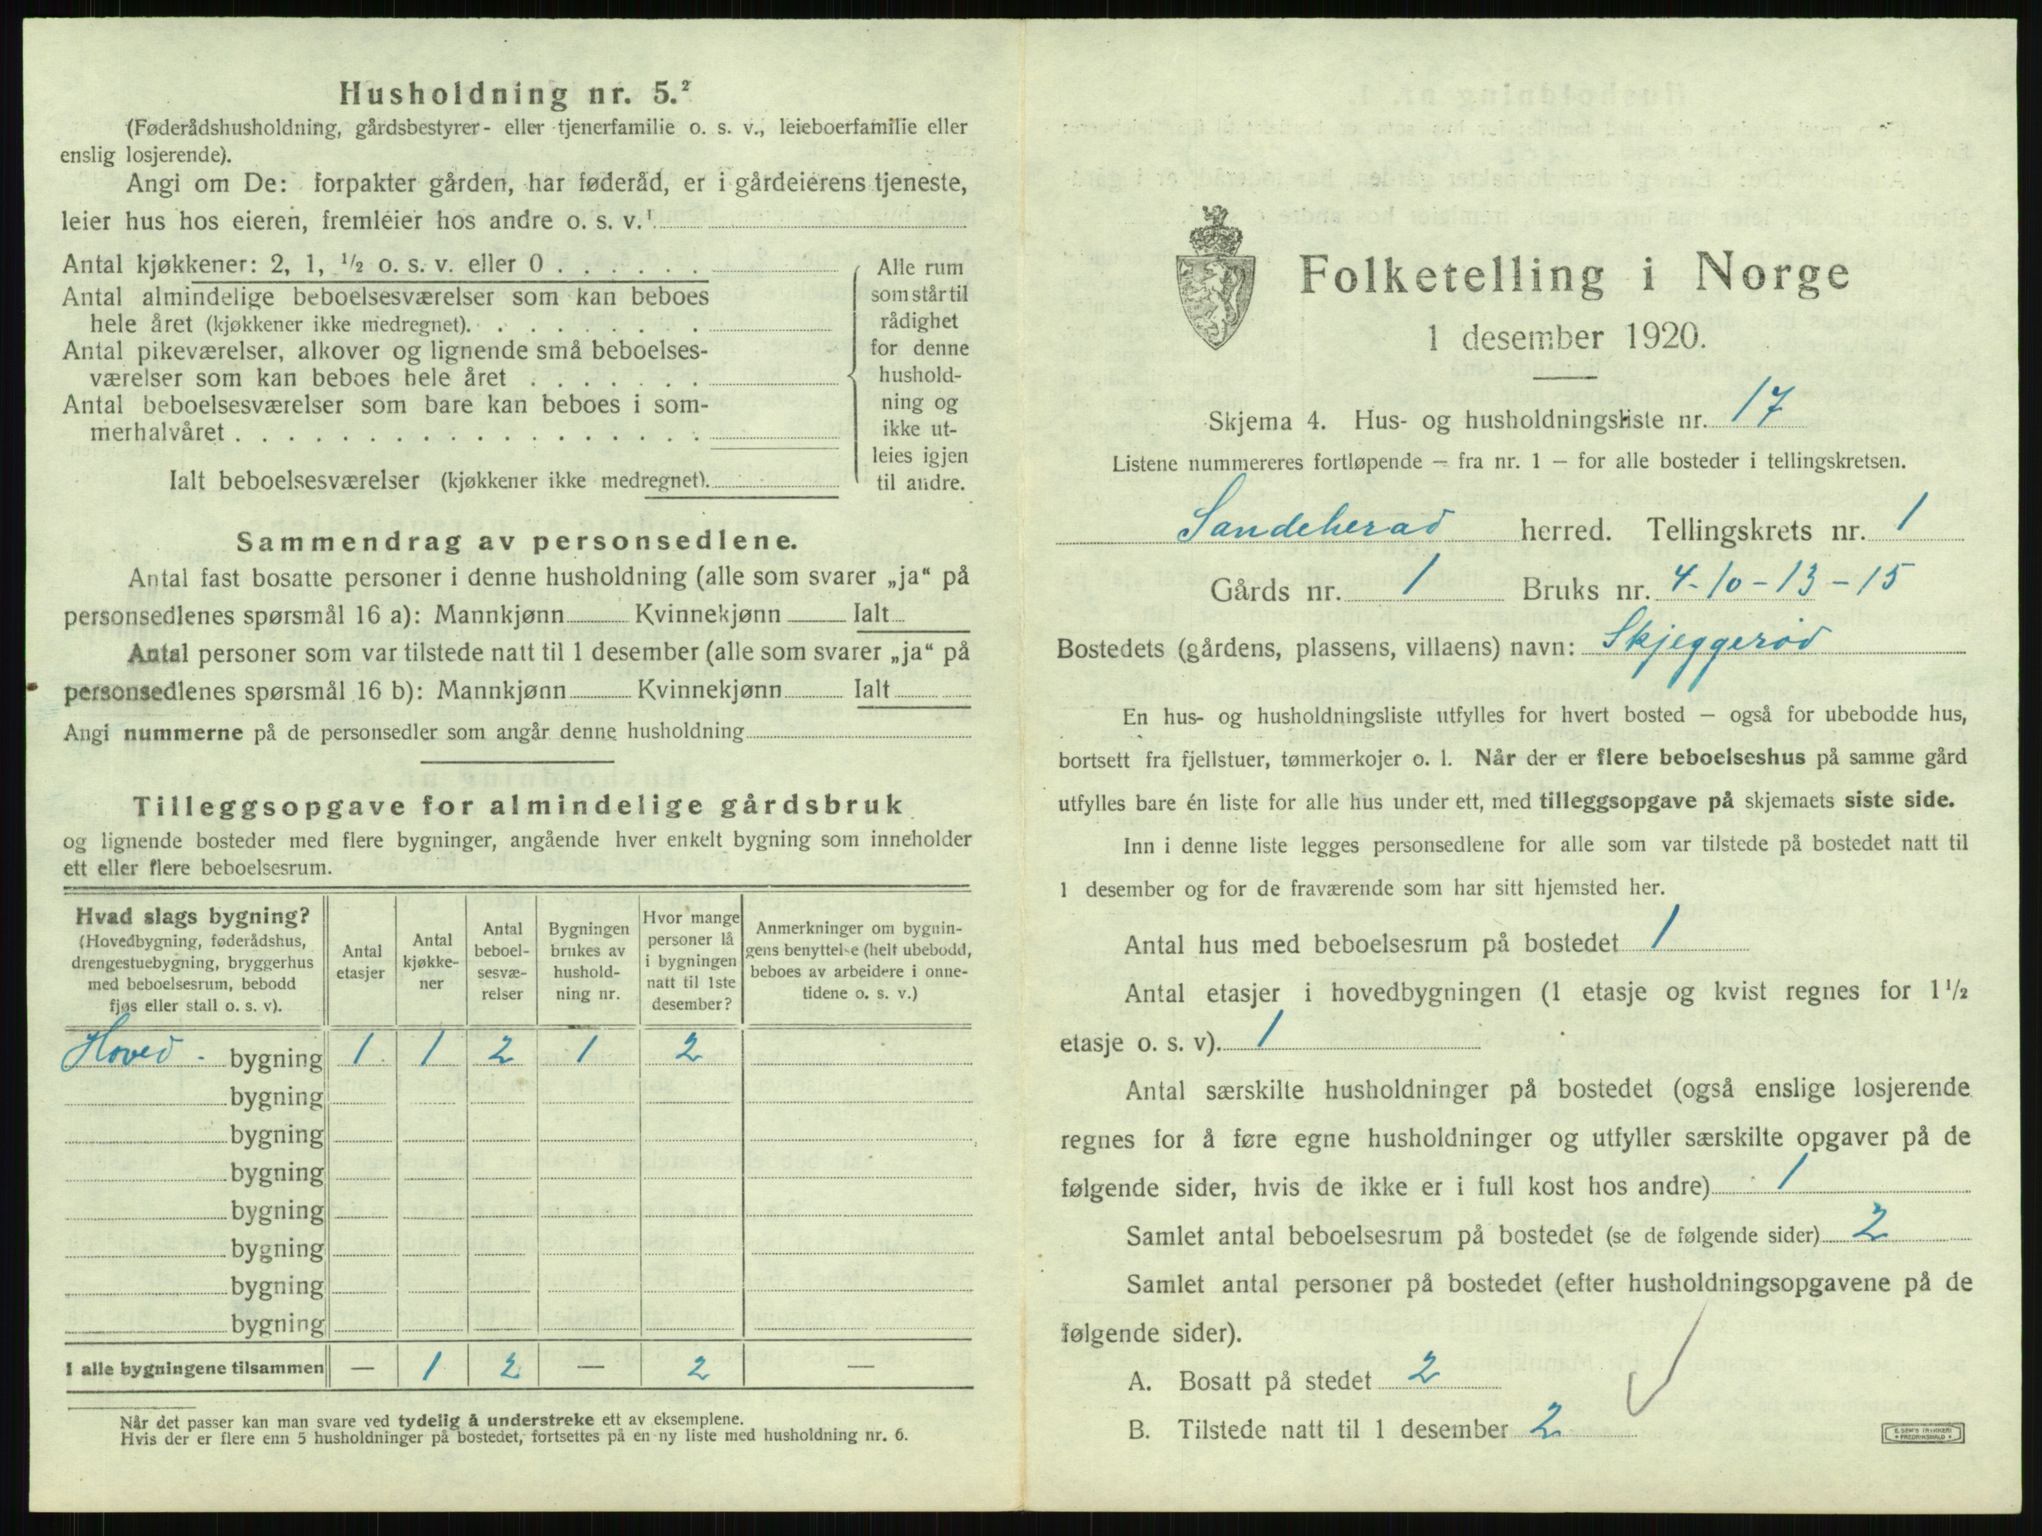 Husholdning nr. 5.²
(Føderådshusholdning, gårdsbestyrer- eller tjenerfamilie o. s. v., leieboerfamilie eller
enslig losjerende).
Angi om De: forpakter gården, har føderåd, er i gårdeierens tjeneste,
leier hus hos eieren, fremleier hos andre o. s. v.¹
Antal kjøkkener: 2, 1, ½ o. s. v. eller 0
Antal almindelige beboelsesværelser som kan beboes
hele året (kjøkkener ikke medregnet).
Antal pikeværelser, alkover og lignende små beboelses-
værelser som kan beboes hele året
Antal beboelsesværelser som bare kan beboes i som-
merhalvåret
Ialt beboelsesværelser (kjøkkener ikke medregnet).
Alle rum
som står til
rådighet
for denne
hushold-
ning og
ikke ut-
leies igjen
til andre.
Sammendrag av personsedlene.
Antal fast bosatte personer i denne husholdning (alle som svarer „ja“ på
personsedlenes spørsmål 16 a): Mannkjønn Kvinnekjønn Ialt
Antal personer som var tilstede natt til 1 desember (alle som svarer „ja“ på
personsedlenes spørsmål 16 b): Mannkjønn Kvinnekjønn Ialt
Angi nummerne på de personsedler som angår denne husholdning
Tilleggsopgave for almindelige gårdsbruk
og lignende bosteder med flere bygninger, angående hver enkelt bygning som inneholder
ett eller flere beboelsesrum.
Hvad slags bygning?
(Hovedbygning, føderådshus,
drengestuebygning, bryggerhus
med beboelsesrum, bebodd
fjøs eller stall o. s. v).
Antal
etasjer
Antal
kjøkke-
ner
Antal
beboel-
sesvæ-
relser
Bygningen
brukes av
hushold-
ning nr.
Hvor mange
personer lå
i bygningen
natt til 1ste
desember?
Anmerkninger om bygnin-
gens benyttelse (helt ubebodd,
beboes av arbeidere i onne-
tidene o. s. v.)
Hoved- bygning 1 1 2 1 2
bygning
bygning
bygning
bygning
bygning
bygning
bygning
I alle bygningene tilsammen — 1 2 — 2 —
Når det passer kan man svare ved tydelig å understreke ett av eksemplene.
Hvis der er flere enn 5 husholdninger på bostedet, fortsettes på en ny liste med husholdning nr. 6.
Folketelling i Norge
1 desember 1920.
Skjema 4. Hus- og husholdningsliste nr. 17
Listene nummereres fortløpende – fra nr. 1 – for alle bosteder i tellingskretsen.
Sandeherad herred. Tellingskrets nr. 1
Gårds nr. 1 Bruks nr. 4-10-13-15
Bostedets (gårdens, plassens, villaens) navn: Skjeggerød
En hus- og husholdningsliste utfylles for hvert bosted – også for ubebodde hus,
bortsett fra fjellstuer, tømmerkojer o. l. Når der er flere beboelseshus på samme gård
utfylles bare én liste for alle hus under ett, med tilleggsopgave på skjemaets siste side.
Inn i denne liste legges personsedlene for alle som var tilstede på bostedet natt til
1 desember og for de fraværende som har sitt hjemsted her.
Antal hus med beboelsesrum på bostedet 1
Antal etasjer i hovedbygningen (1 etasje og kvist regnes for 1½
etasje o. s. v). 1
Antal særskilte husholdninger på bostedet (også enslige losjerende
regnes for å føre egne husholdninger og utfyller særskilte opgaver på de
følgende sider, hvis de ikke er i full kost hos andre) 1
Samlet antal beboelsesrum på bostedet (se de følgende sider) 2
Samlet antal personer på bostedet (efter husholdningsopgavene på de
følgende sider).
A. Bosatt på stedet 2
B. Tilstede natt til 1 desember 2